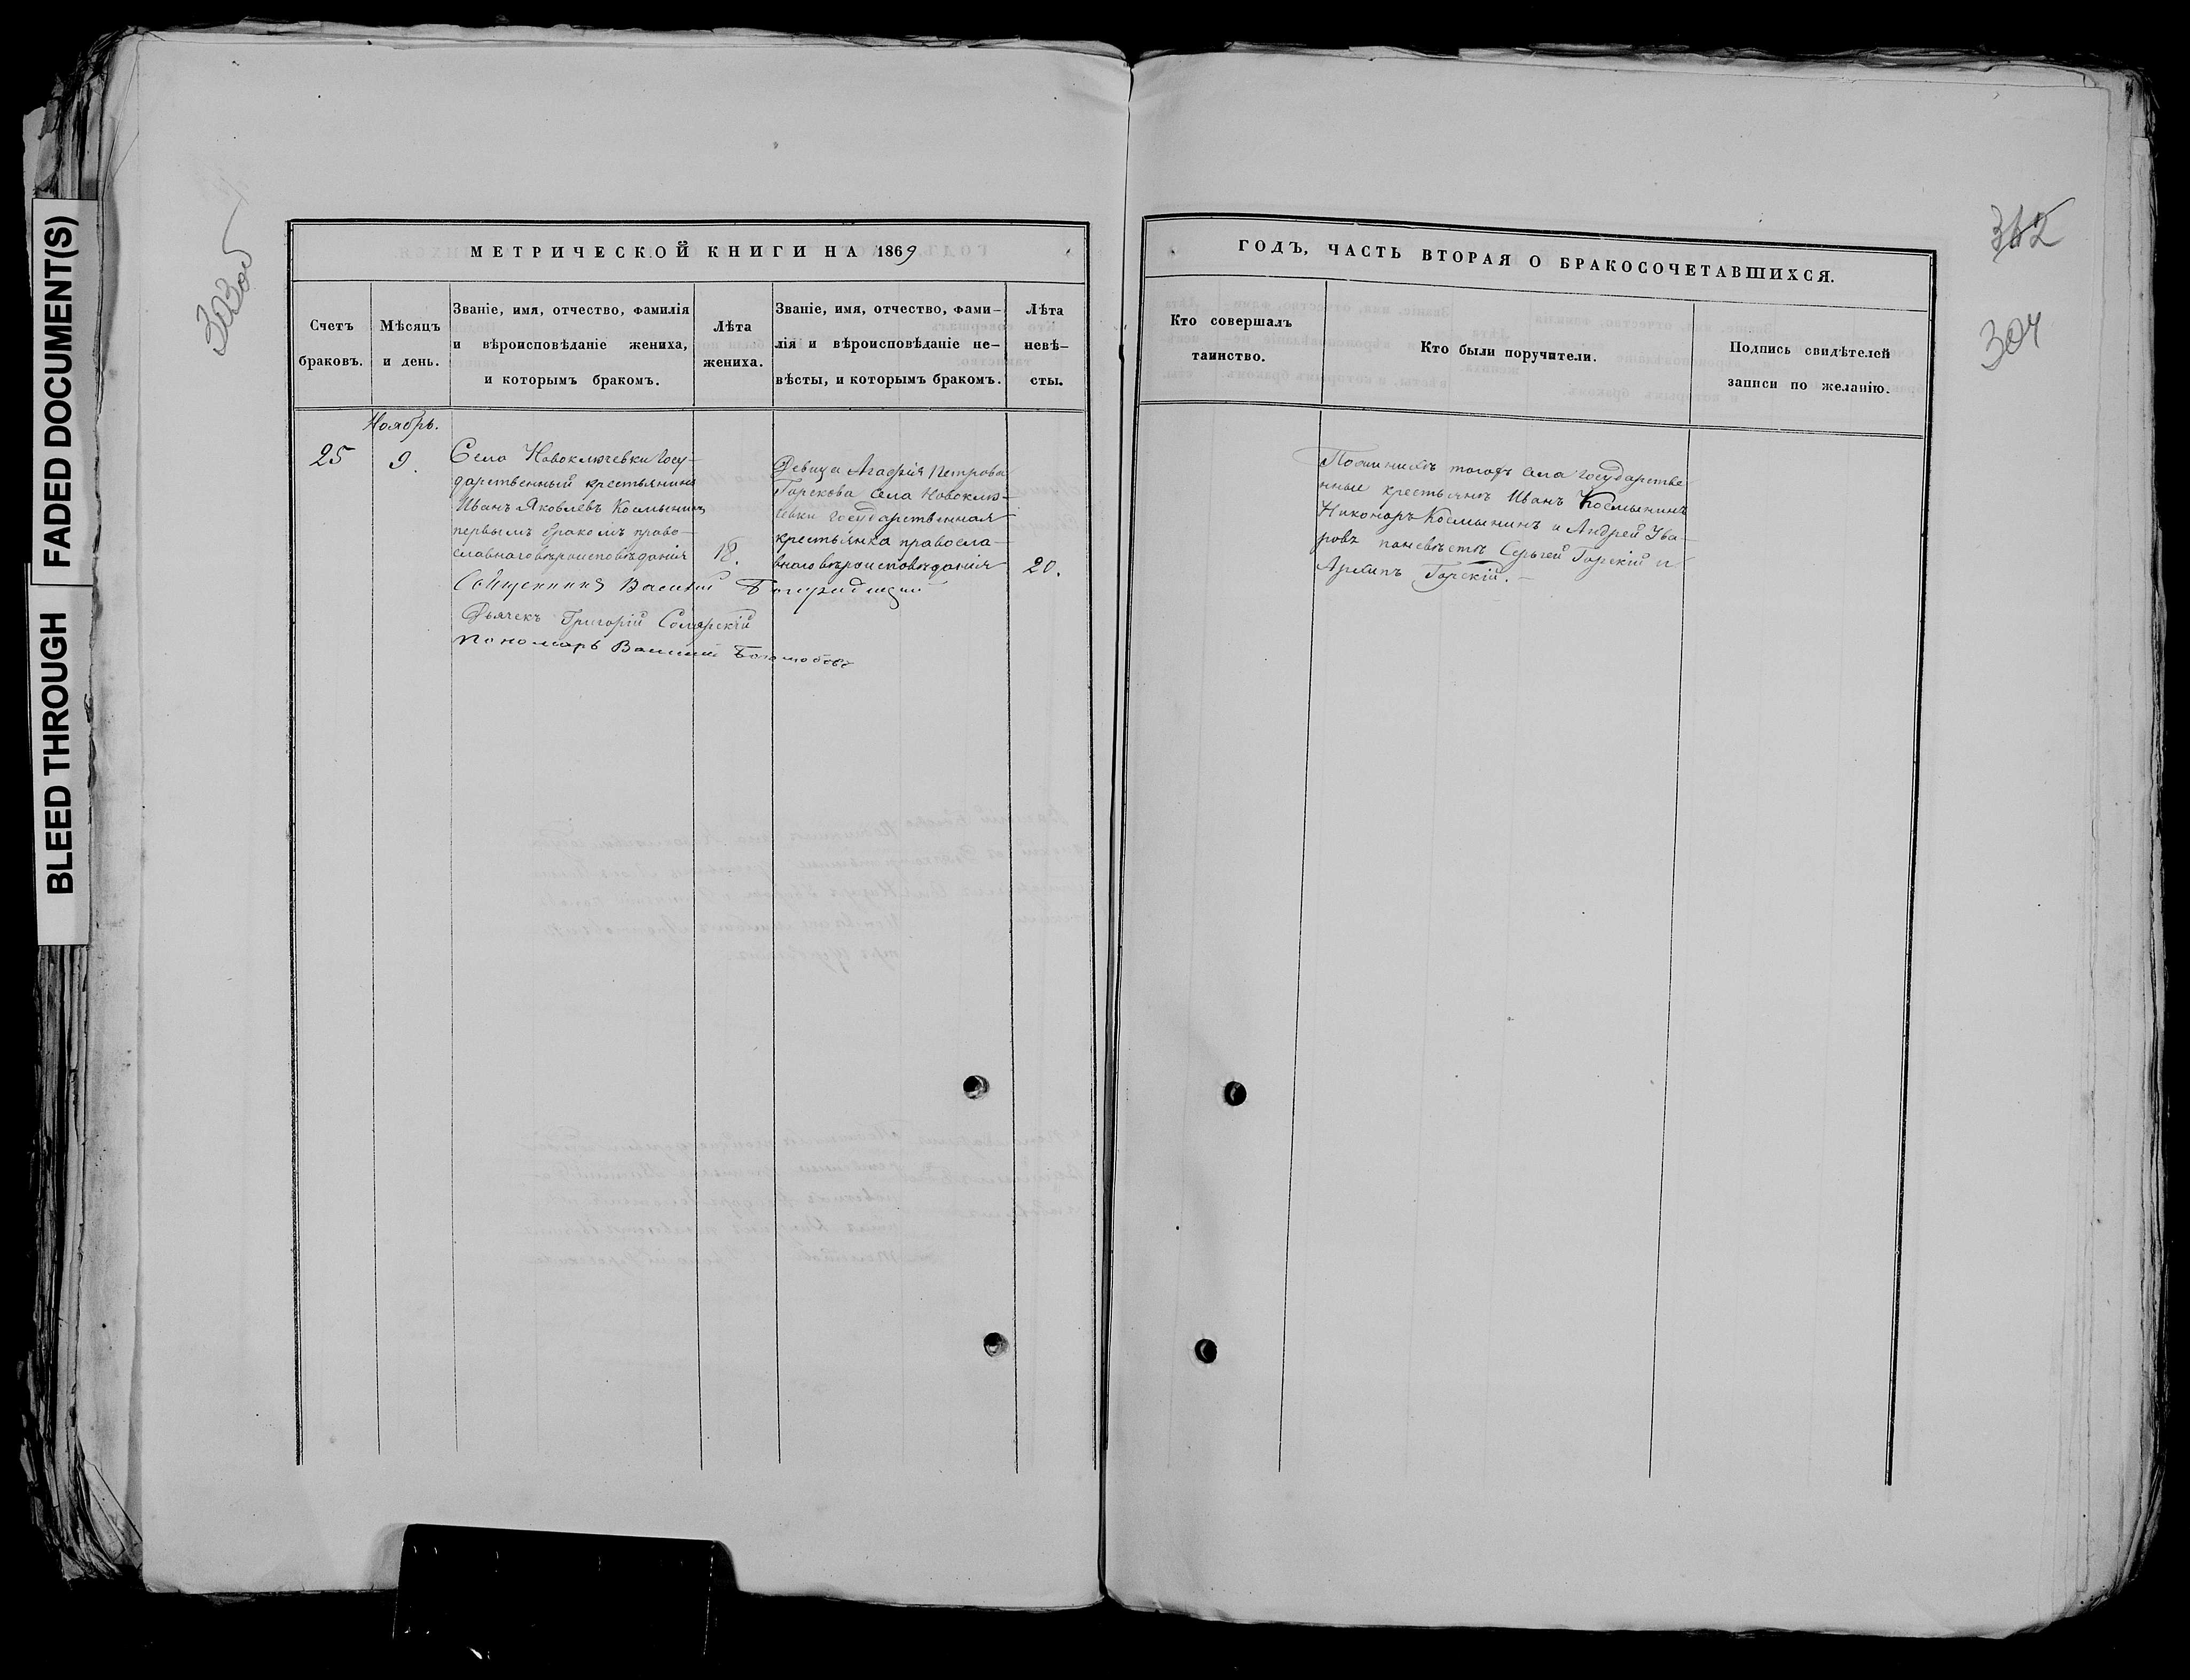 FADED DOCUMENT(S)
BLEED THROUGH
303об
МЕТРИЧЕСКОЙ КНИГИ НА 1869
Счетъ браковъ.
Мѣсяцъ и день.
Званіе, имя, отчество, фамилія
и вѣроисповѣданіе жениха,
и которымъ бракомъ.
Лѣта жениха.
Званіе, имя, отчество, фами-
лія и вѣроисповѣданіе не-
вѣсты, и которымъ бракомъ.
Лѣта невѣ-
сты.
Ноябрь.
25
9.
Села Новоключевки Госу-
дарственный крестьянинъ
Иванъ Яковлевъ Космынинъ
первымъ бракомъ право-
славнаго вѣроисповѣданія
18.
Девица Агафія Петрова
Горскова села Новоклю-
чевки государственная
крестьянка правосла-
внаго вѣроисповѣданія
20.
Священникъ Василий
Дьячекъ Григорій
Пономарь Василий Боголюбовъ
ГОДЪ, ЧАСТЬ ВТОРАЯ О БРАКОСОЧЕТАВШИХСЯ.
362
304
Кто совершалъ
таинство.
Кто были поручители.
Подпись свидѣтелей
записи по желанію.
Поженихѣ тогожъ села государстве-
нные крестьяне Иванъ Космынинъ
Никоноръ Космынинъ и Андрей Ува-
ровъ поневѣстѣ Сергей Горскій и
Архипъ Горскій.